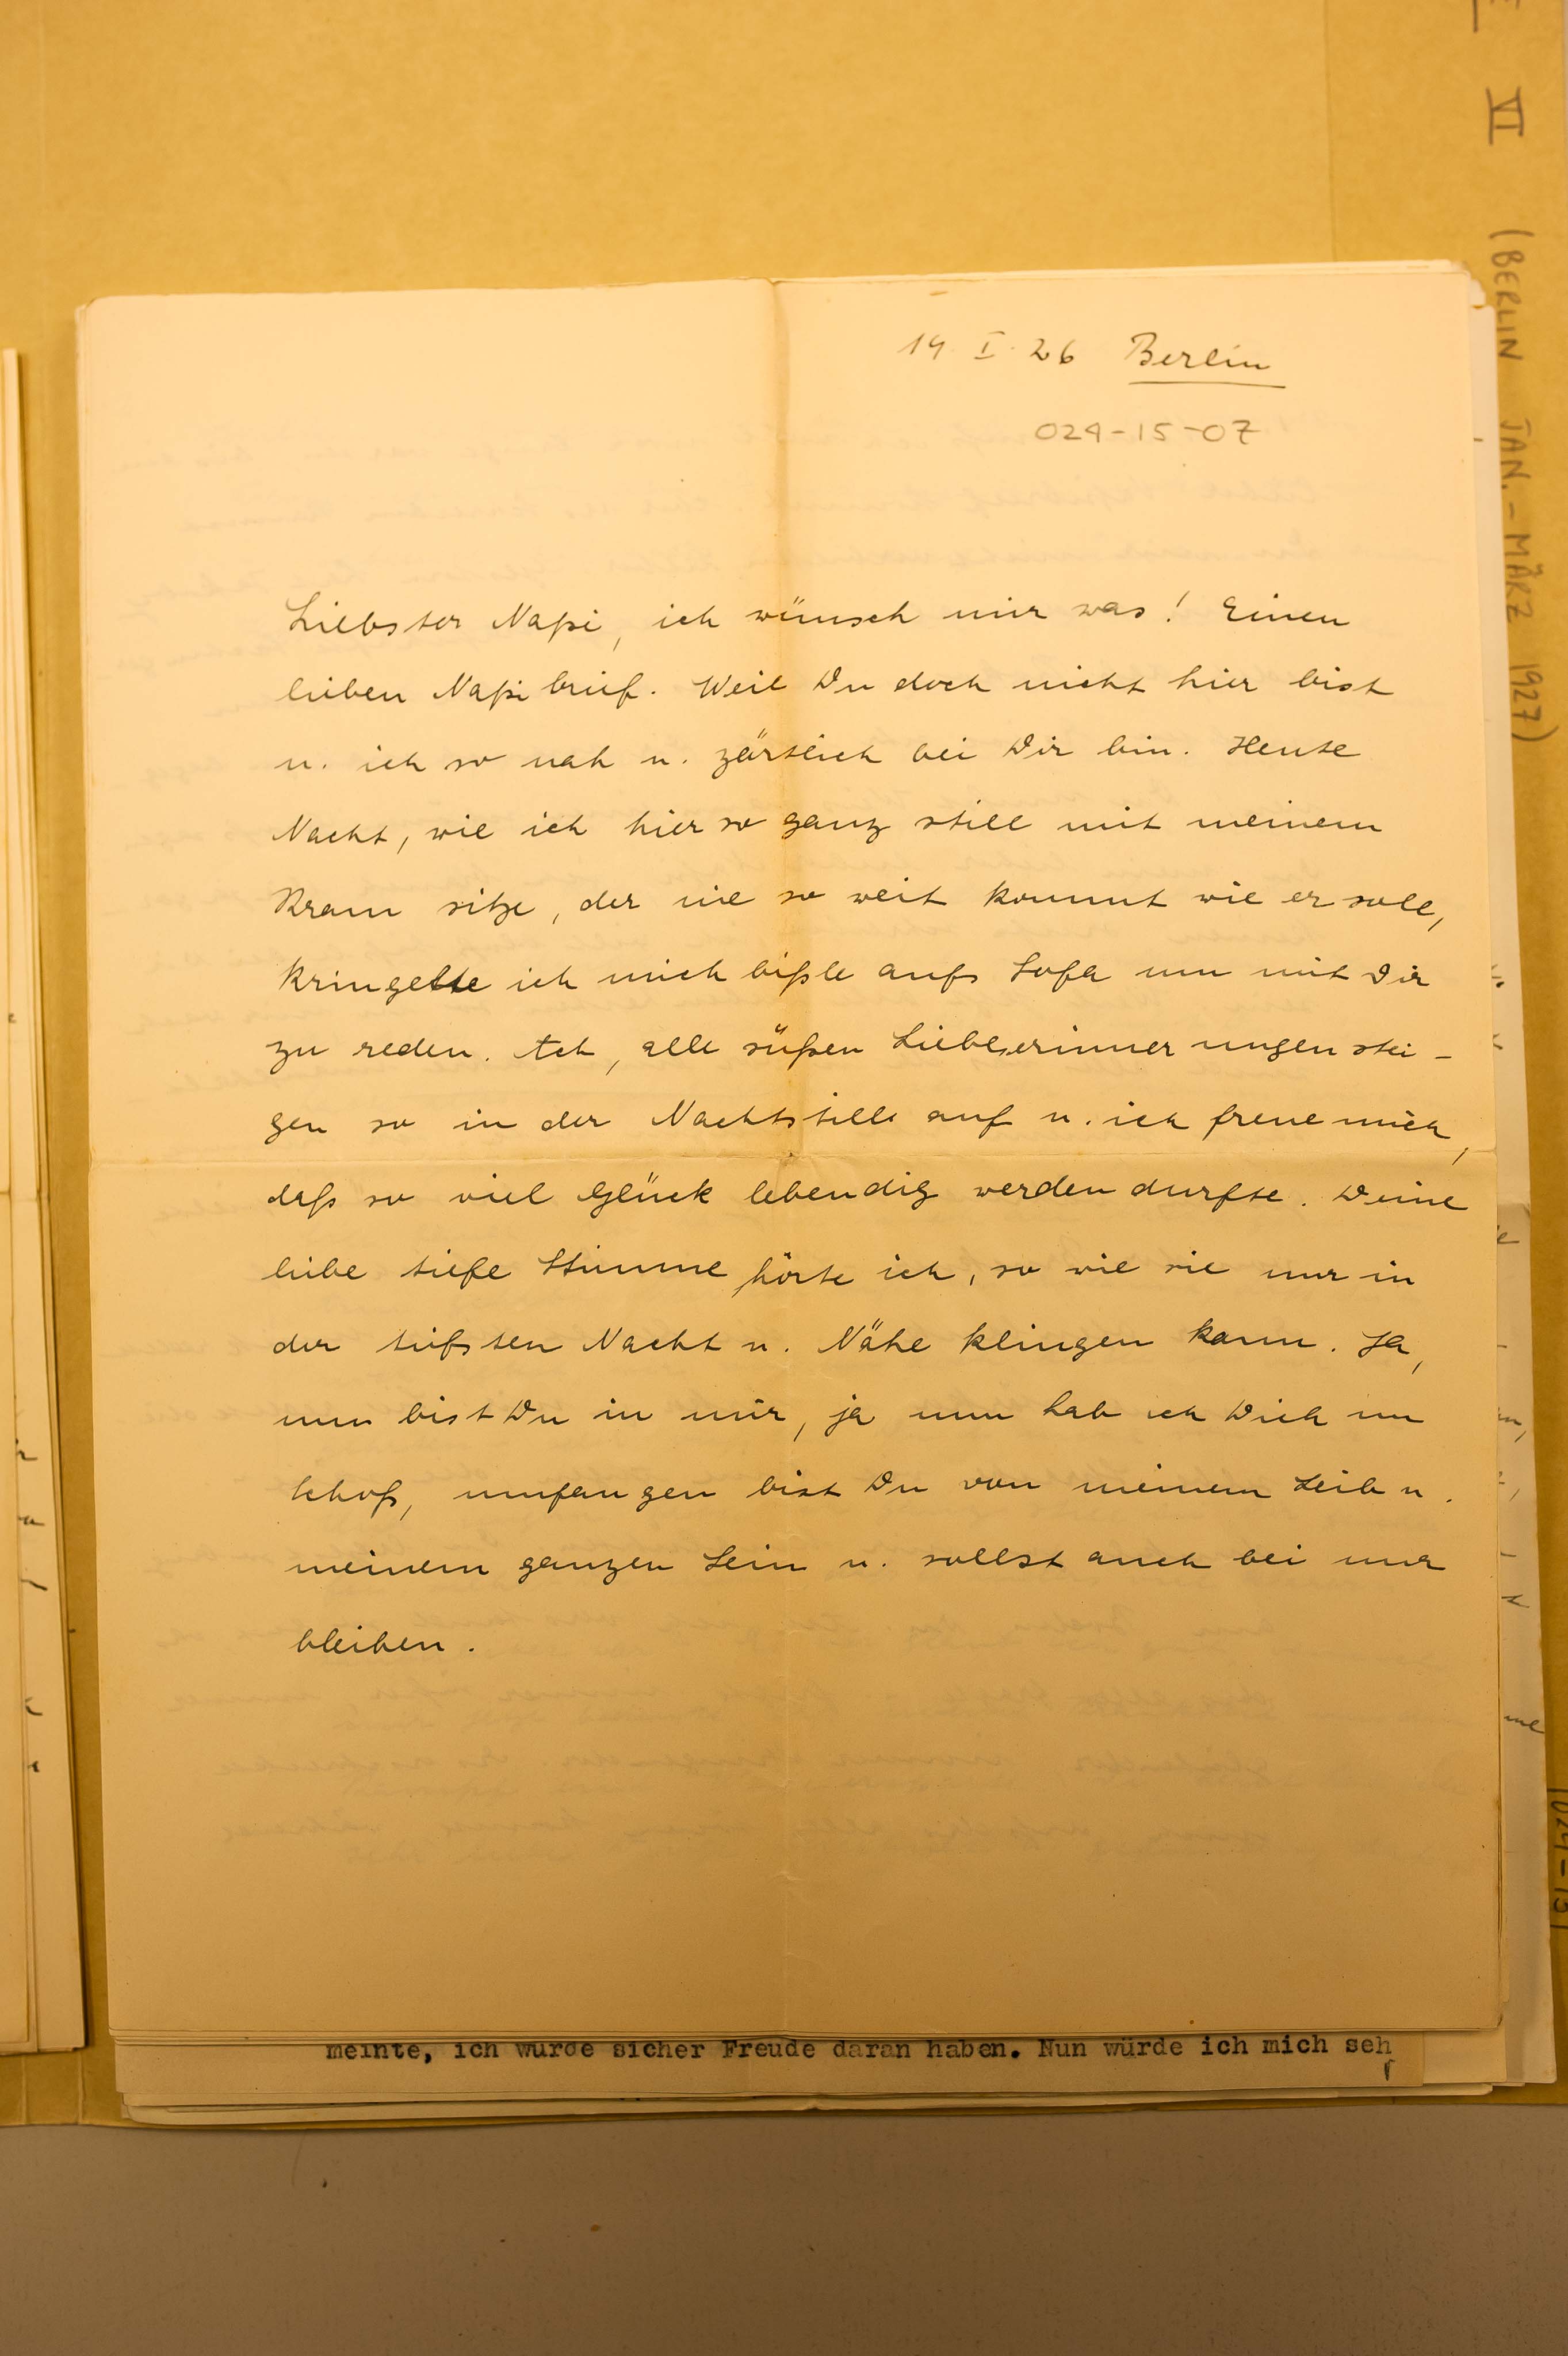 19 I. 26 Berlin
024-15-07
Liebster Napi, ich wünsch mir was! Einen
lieben Napibrief. Weil Du doch nicht hier bist
u. ich so nah u. zärtlich bei Dir bin. Heute
Nacht, wie ich hier so ganz still mit meinem
Kram sitze, der nie so weit kommt wie er soll,
kringelte ich mich bißle aufs Sofa um mit Dir
zu reden. Ach, alle süßen Liebeserinnerungen stei-
gen so in der Nachtstille auf u. ich freue mich,
daß so viel Glück lebendig werden durfte. Deine
liebe tiefe Stimme hörte ich, so wie sie nur in
der tiefsten Nacht u. Nähe klingen kann. Ja,
nun bist Du in mir, ja nun hab ich Dich im
Schoß, umfangen bist Du von meinem Leib u.
meinem ganzen Sein u. sollst auch bei mir
bleiben.
meinte, ich würde sicher Freude daran haben. Nun würde ich mich seh
r
VI (BERLIN JAN.-MÄRZ 1927)